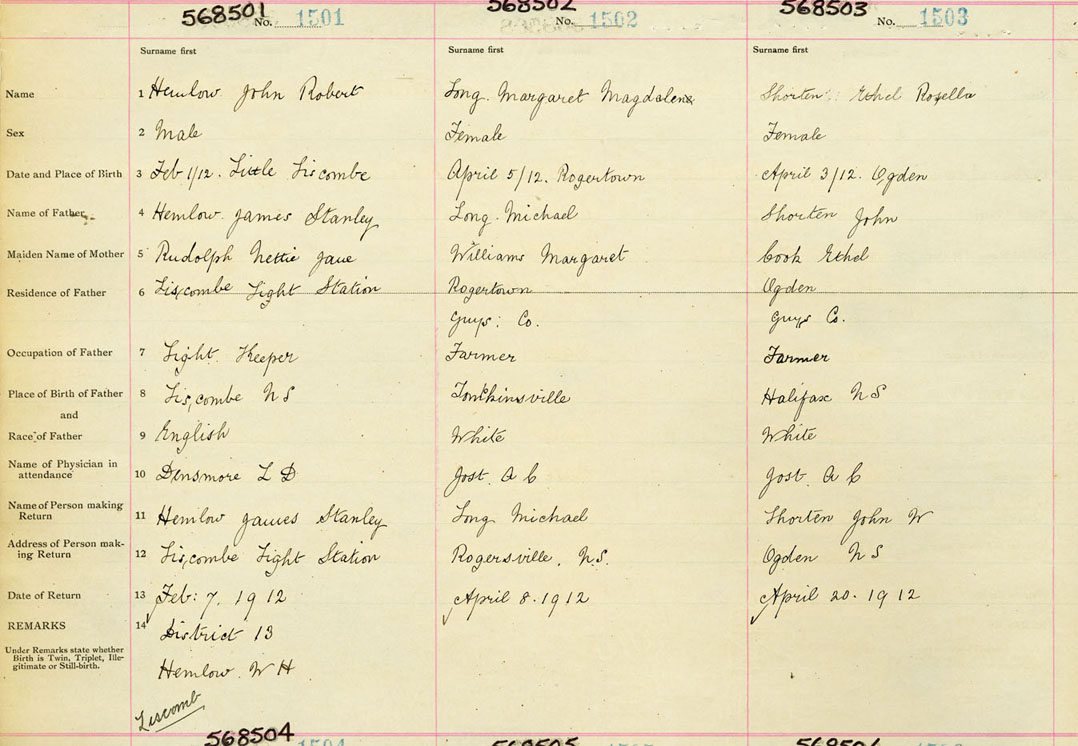 568501 No. 1501 568502 No. 1502 568503 No. 1503
Surname first Surname first Surname first
Name 1 Hemlow John Robert Long. Margaret Magdalene Shorten: Ethel Rosella
Sex 2 Male Female Female
Date and Place of Birth 3 Feb 1/12. Little Liscombe April 5/12. Rogertown April 3/12. Ogden
Name of Father 4 Hemlow James Stanley Long. Michael Shorten John
Maiden Name of Mother 5 Rudolph Nettie Jane Williams Margaret Cook Ethel
Residence of Father 6 Liscombe Light Station Rogertown Ogden
Guys: Co. Guys Co.
Occupation of Father 7 Light Keeper Farmer Farmer
Place of Birth of Father 8 Liscombe N S Tompkinsville Halifax N S
and
Race of Father 9 English White White
Name of Physician in
attendance 10 Densmore L D Jost. A C Jost. A C
Name of Person making
Return 11 Hemlow James Stanley Long Michael Shorten John W
Address of Person mak-
ing Return 12 Liscombe Light Station Rogersville, N.S. Ogden N S
Date of Return 13 Feb: 7. 1912 April 8. 1912 April 20. 1912
REMARKS 14 District 13
Under Remarks state whether
Birth is Twin, Triplet, Ille-
gitimate or Still-birth.
Hemlow. W H
Liscomb
568504 1504 568505 1505 568506 1506